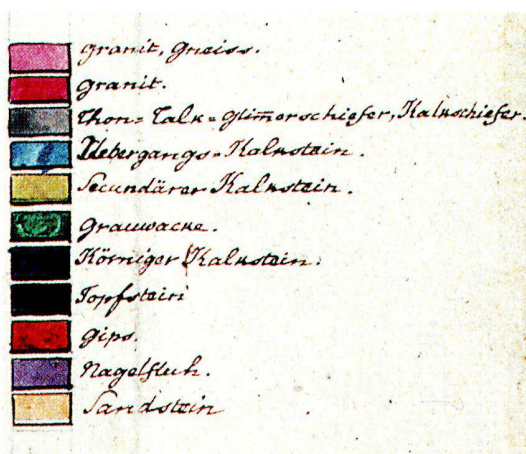 granit, Gneiss.
granit.
Thon= Talk=glim̅erschiefer, Kalkschiefer.
Uebergangs=Kalkstein.
Secundärer Kalkstein.
grauwacke.
Körniger Kalkstein.
Topfstein
gips.
Nagelfluh.
Sandstein